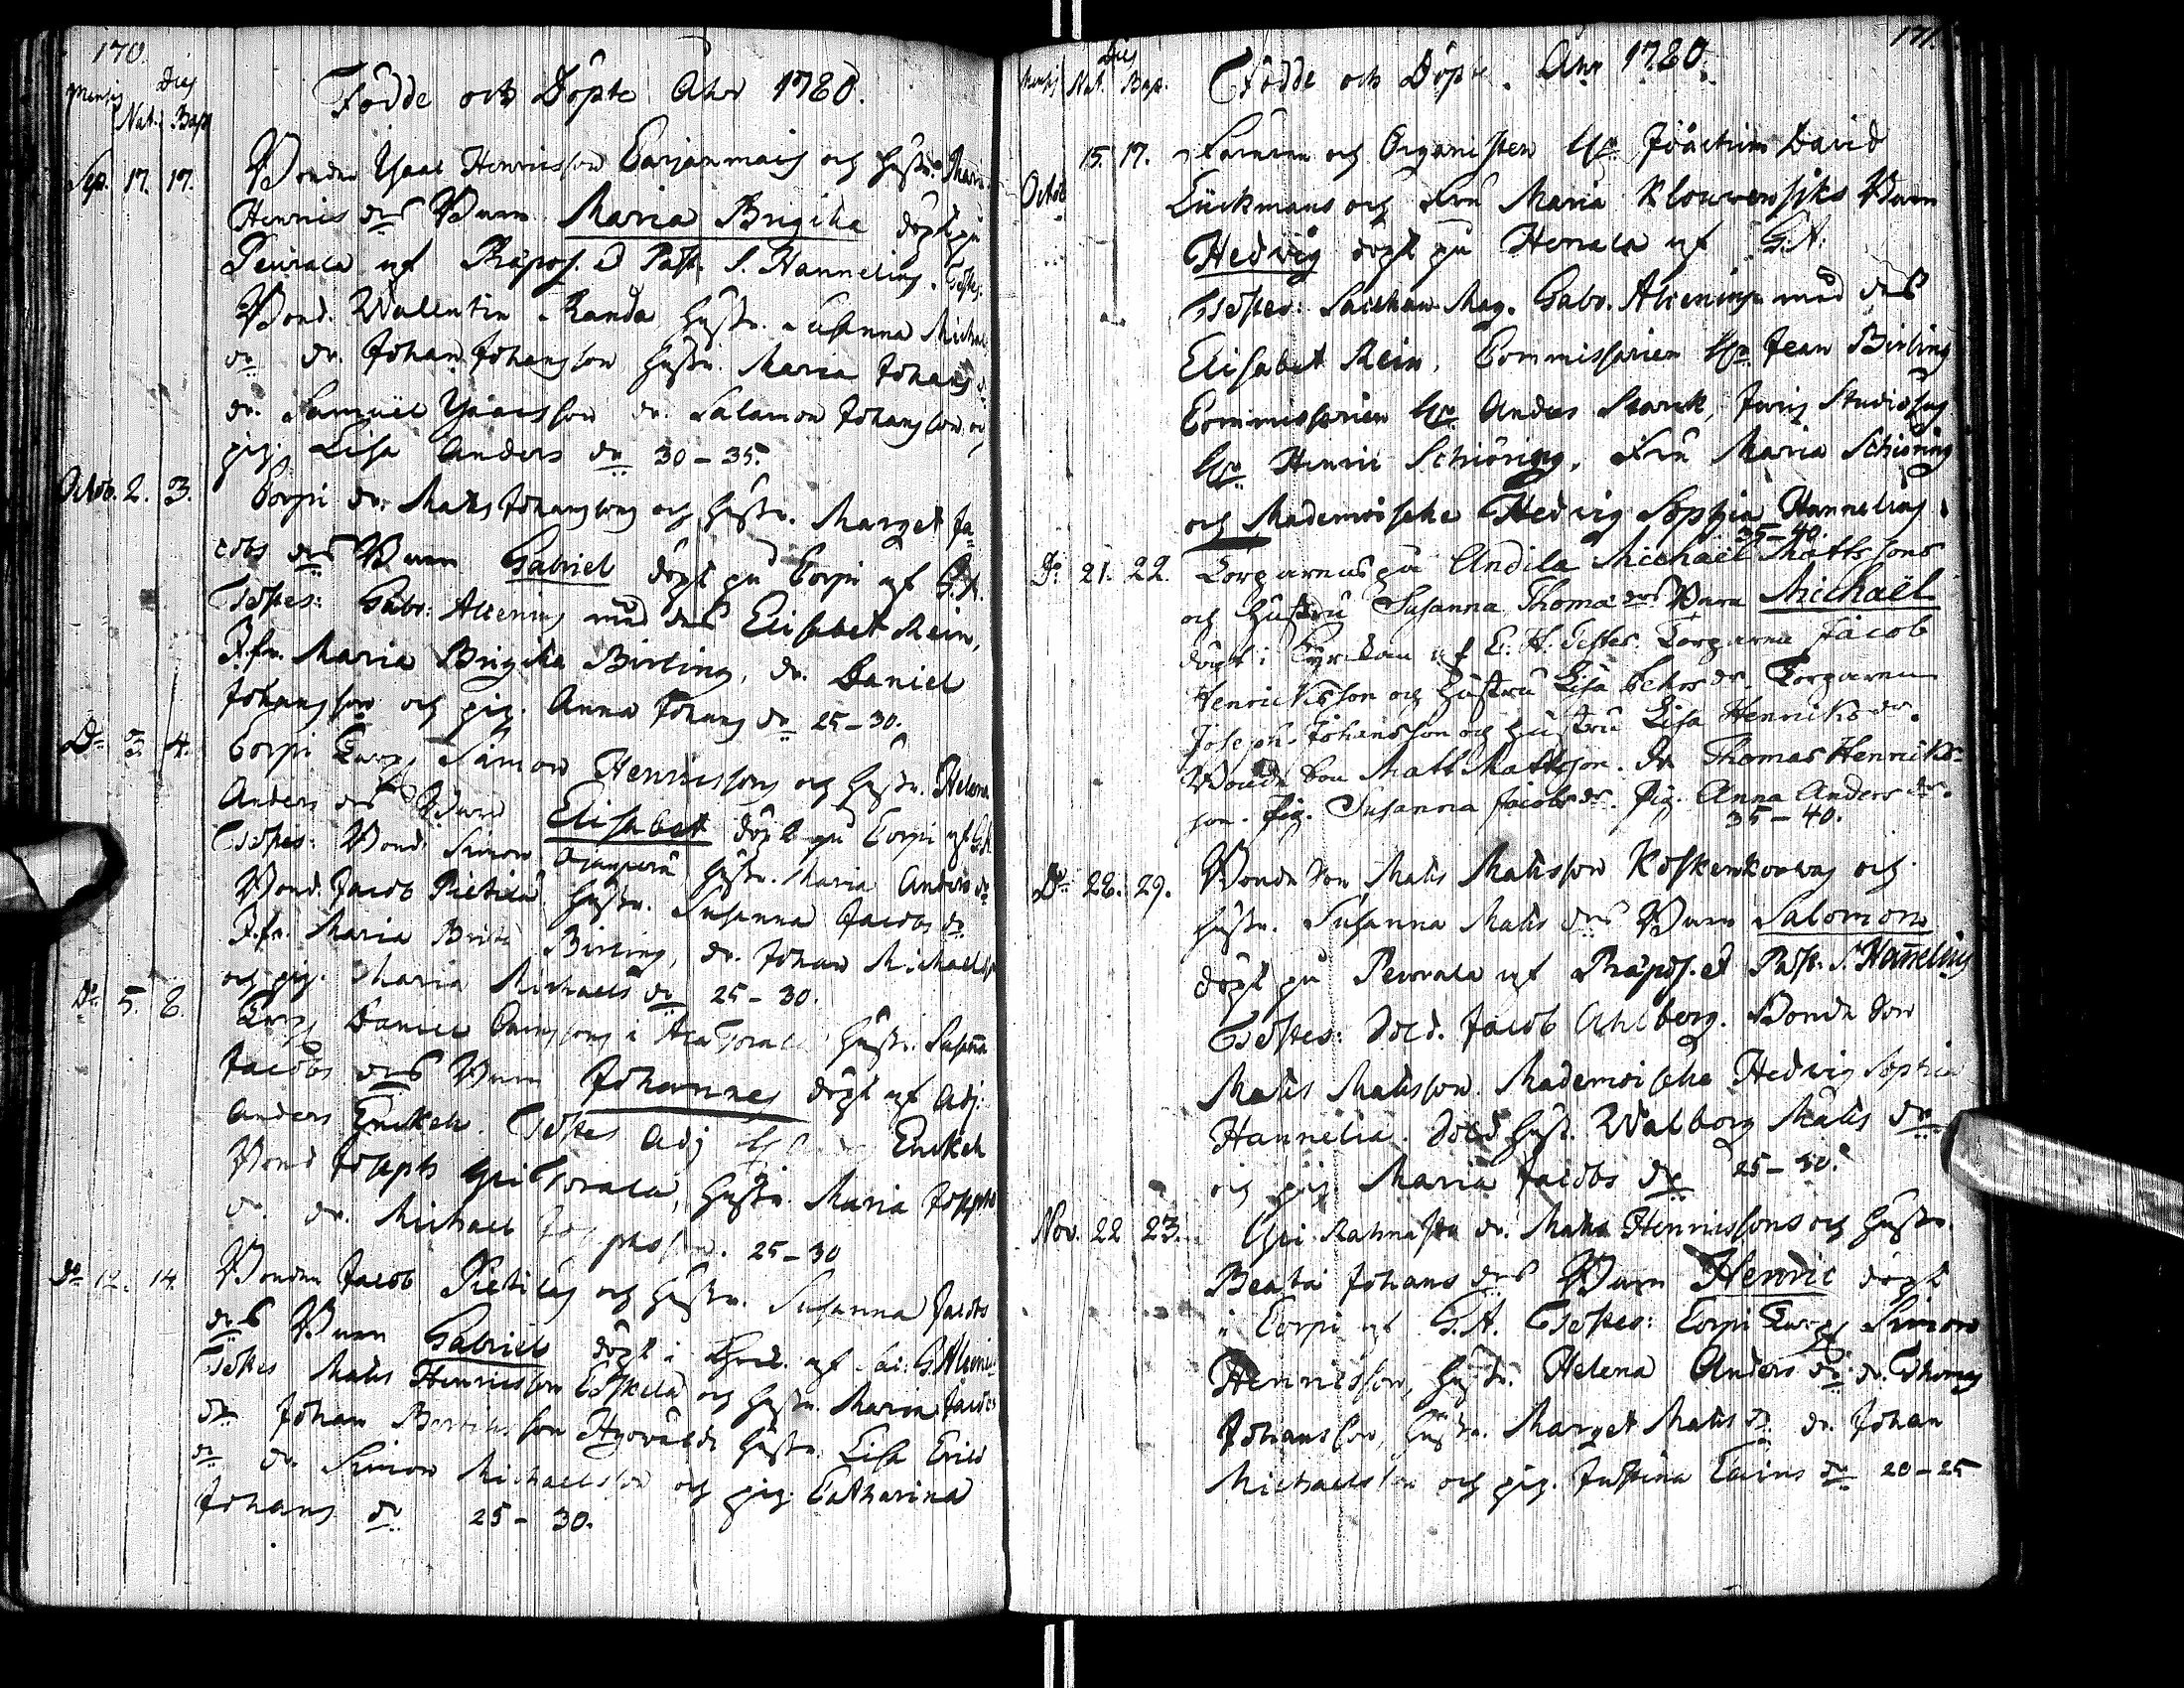 170.
Mensis Dies
Nat. Bap.
Födde och Döpte Åhr 1780.
Sep. 17. 17. Bonden Ysaac Henricsson Carjanmais och hustr. Maria
Henrics drs Barn Maria Brigitta döpt på
Peurala af Præpos. et Past. S. Hannelius. Testes:
Bond. Wallentin Randa, hustr. Susanna Michaels
dr dr. Johan Johansson hustr. Maria Johans dr
dr. Samuel Ysaacsson dr. Salamon Johansson och
pig. Lisa Anders dr 30-35.
Octob. 2. 3. Corpi dr. Matts Johanssons och hustr. Marget Ja-
cobs drs Barn Gabriel döpt på Corpi af G.A.
Testes: Gabr: Alcenius med dess Elisabet Mein,
J.fr. Maria Brigitta Birling, dr. Daniel
Johansson och pig. Anna Johans dr 25-30.
Do 3. 4. Corpi Torp. Simon Henricssons och hustr. Helena
Anders drs Barn Elisabet döpt på Corpi af G.A.
Testes: Bond. Simon Ojanperä hustr. Maria Anders dr
Bond. Jacob Pietilä hustr. Susanna Jacobs dr
J.fr. Maria Britta Birling, dr. Johan Michaelss.
och pig. Maria Michaels dr 25-30.
Do. 5. 8. Torp. Daniel hustr. Susanna
Jacobs drs Barn Johannes döpt af Adj.
Anders Enckel. Testes Adj Enckel
Bond Joseph Yli Torala, hustr. Maria Josephs
dr dr. Michael Josephsson. 25-30
Do 12. 14. Bonden Jacob Pietiläs och hustr. Susanna Jacobs
drs Barn Gabriel döpt i af G. Alcenius
Testes Matts Henricsson Eskelä och hustr. Maria Jacobs
dr Johan hustr. Lisa Erics
dr dr Simon Michaelsson och pig. Catharina
Johans dr 25-30.
171.
Mensis Dies
Nat. Bap.
Födde och Döpte. Åhr 1780.
Octob 15. 17. och Organisten Hr Joachim David
Lückmans och Fru Maria Barn
Hedvig döpt på Herrala af G.A.
Testes: Mag. Gabr. Alcenius med dess
Elisabet Mein, Commissarien Hr Jean Birling
Commissarien Hr Anders Starck, Juris Studiosus
Hr Henric Schiöring, Fru Maria Schiöring
och Mademoiselle Hedvig Sophia Hannelius.
35-40.
Do 21. 22. Torparens på Andila Michaël Mattssons
och hustru Susanna Thomæ drs Barn Michaël
döpt i Kyrckan af E. H. Testes. Torparen Jacob
Henricksson och hustru Lisa dr. Torparen
Joseph Johansson och hustru Lisa Henriks dr.
Bonde Son Matt Mattsson. Dr Thomas Henriks-
son. Pig. Susanna Jacobs dr. Pig. Anna Anders dr.
35-40.
Do 28. 29. Bonde Son Matts Mattsson Koskenkorvas och
hustr. Susanna Matts drs Barn Salomon
döpt på Peurala af Præpos. et Past. S. Hanelius
Testes: Sold. Jacob Ahlberg. Bonde Son
Matts Mattsson. Mademoiselle Hedvig Sophia
Hannelia. Sold hust. Walborg Matts dr
och pig Maria Jacobs dr 25-30.
Nov. 22 23. Yli dr. Matts Henricssons och hustr.
Beata Johans drs Barn Henric döpt
i Corpi af G.A. Testes: Corpi Torp. Simon
Henricsson, hustr. Helena Anders dr dr. Thomas
Johansson, hustr. Marget Matts dr dr. Johan
Michaelsson och pig. Justina dr 20-25